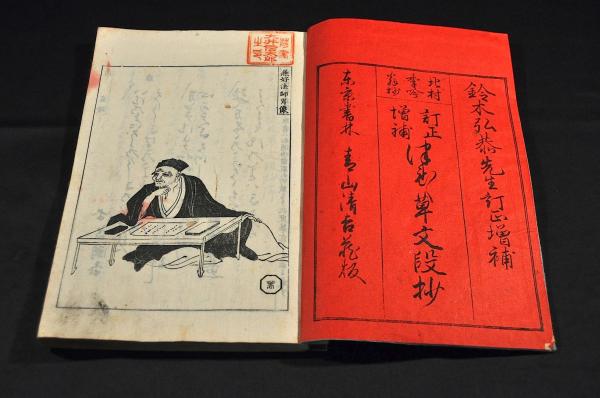 鈴木弘恭先生訂正增補
北村
季吟
訂正
增補
草文段抄
東京書林 青山清吉藏板
兼好法師肖像